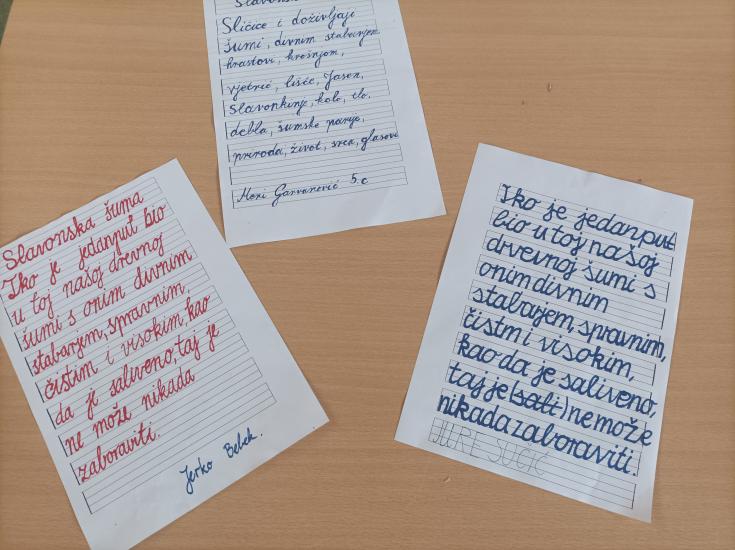 Slavonska
Sličice i doživljaji
šumi, divnim stabanjem
hrastovi, krošnjom,
vjetrić, lišće, Jasen,
Slavonkinje, kolo, tlo.
debla, šumske parije,
priroda, život, srca, glasovi
Meri Garvanović 5.c
Slavonska šuma
Tko je jedanput bio
u toj našoj drevnoj
šumi s onim divnim
stabanjem, spravnim,
čistim i visokim, kao
da je saliveno, taj je
ne može nikada
zaboraviti.
Jerko Bebek.
Tko je jedanput
bio u toj našoj
drvevnoj šumi s
onim divnim
stabarjem, spravnim,
čistm i visokim,
kao da je saliveno,
taj je (sali) ne može
nikada zaboraviti.
JURE SUČIĆ